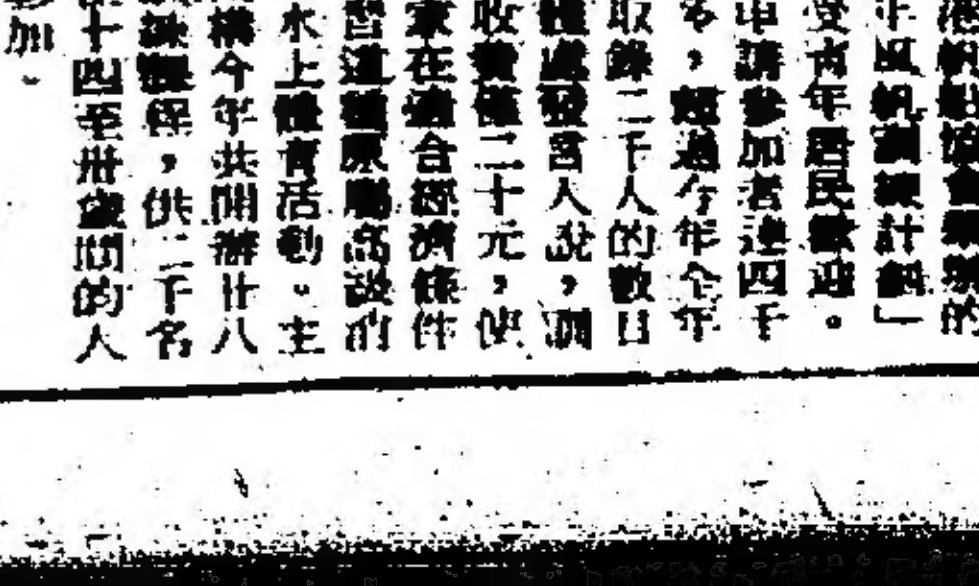 的
年風帆訓練計劃」
受青年居民歡迎。
申請參加者達四千
多，超過今年全年
取錄二千人的數目
發言人說，訓
收費僅二十元，使
家在適合經濟條件
習這種原屬高談的
水上體育活動。主
構今年共開辦廿八
訓練課程，供二千名
十四至卅歲間的人
參加。